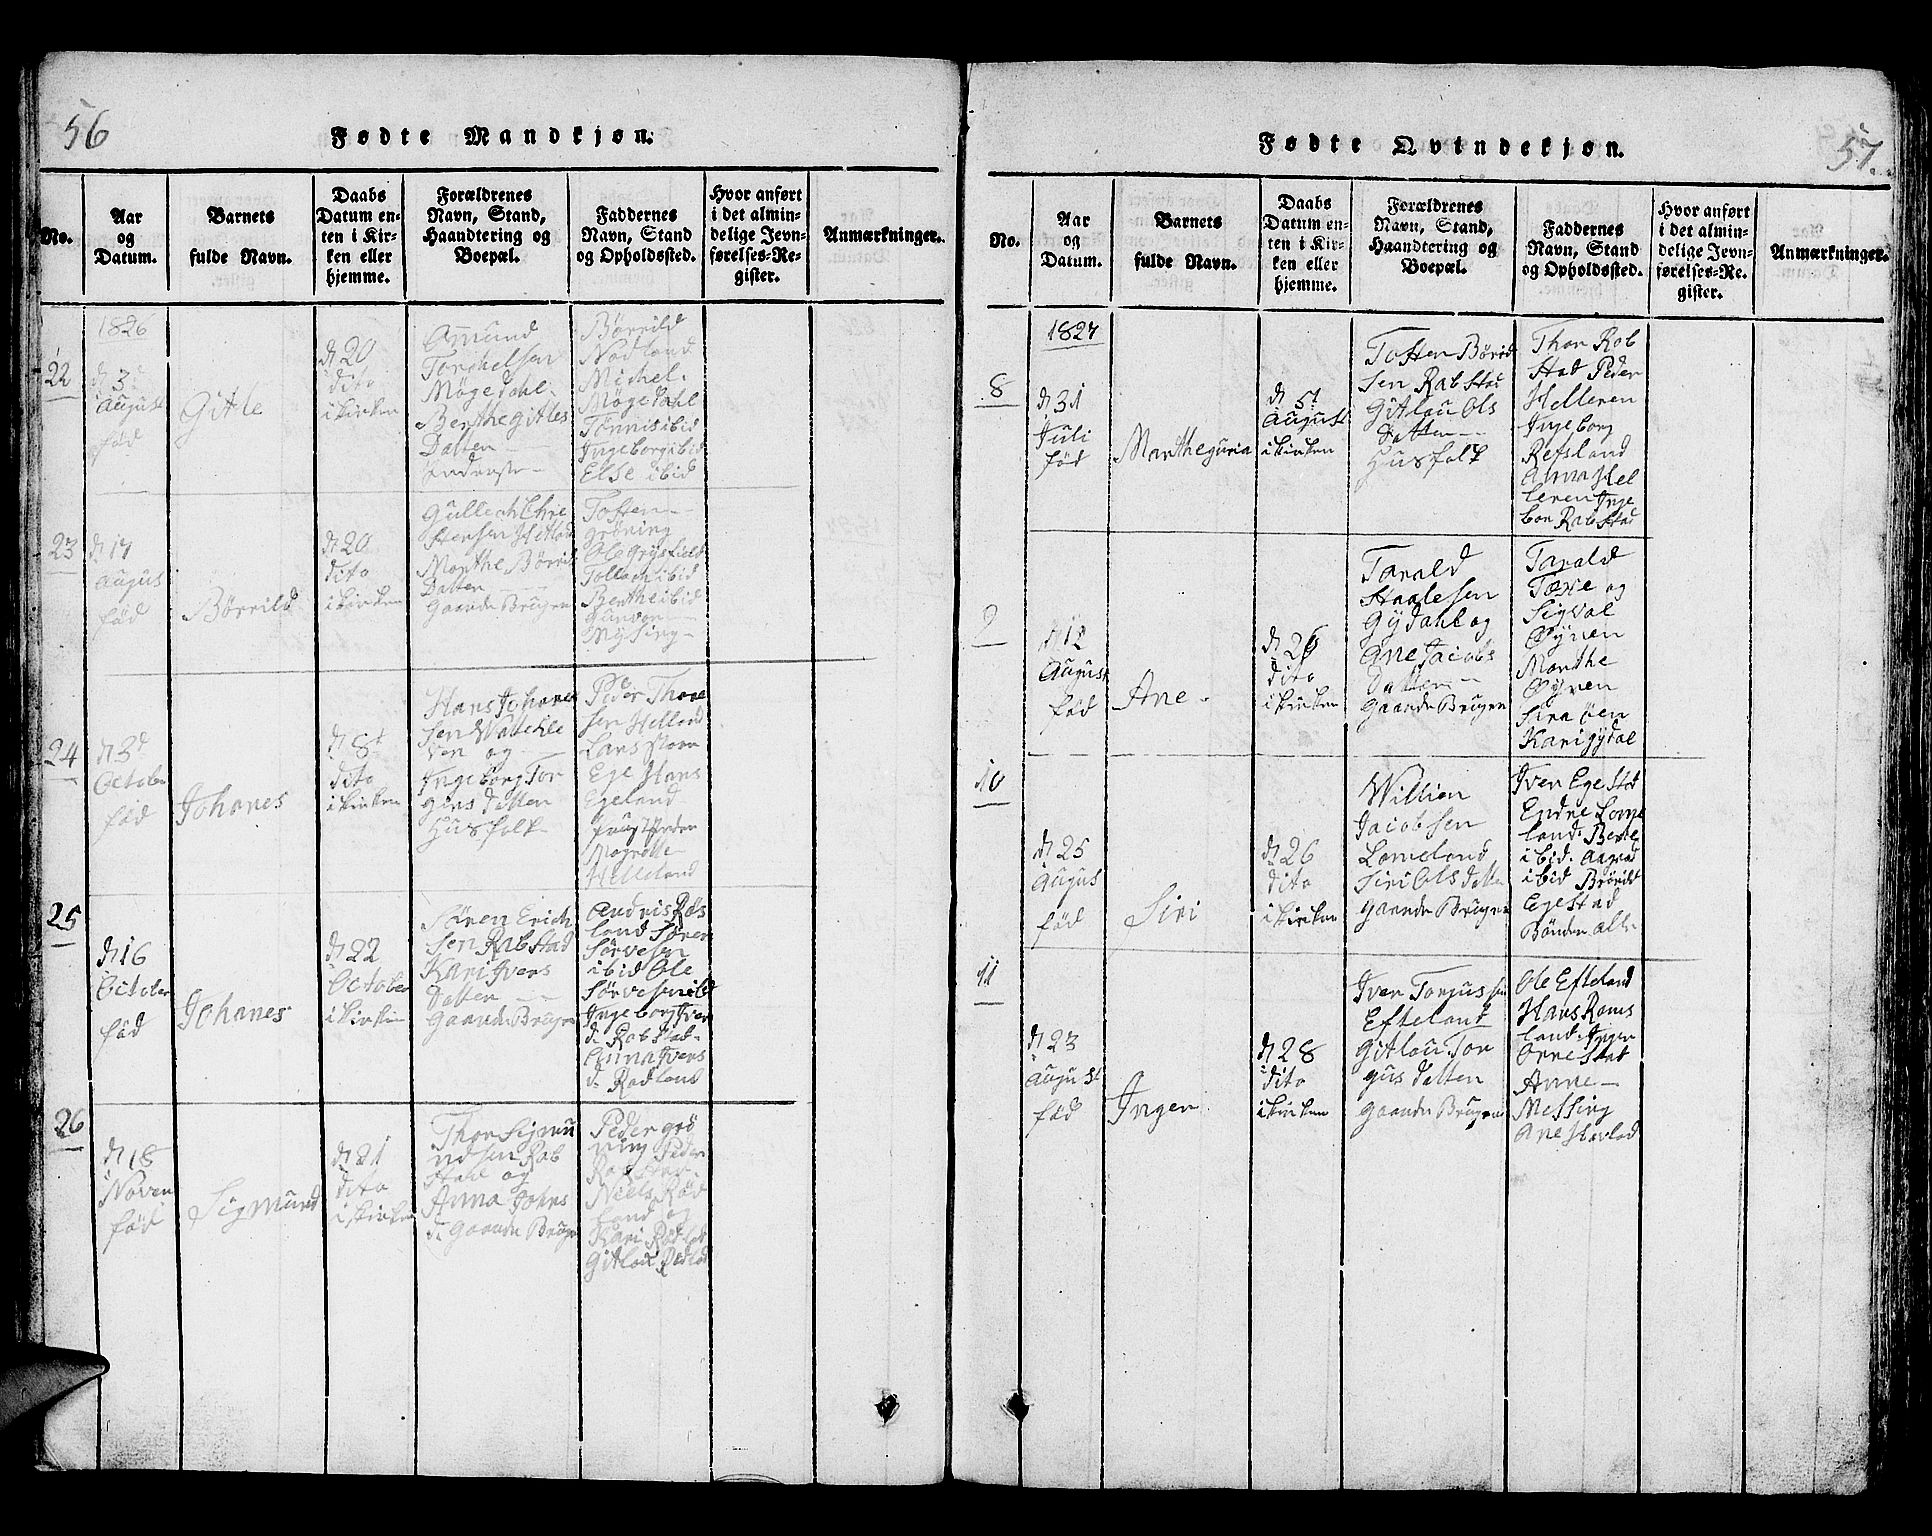 56
Fødte Mandkjøn.
No.
Aar
og
Datum.
Barnets
fulde Navn.
Daabs
Datum en-
ten i Kir-
ken eller
hjemme.
Forældrenes
Navn, Stand,
Haandtering og
Boepæl.
Faddernes
Navn, Stand
og Opholdssted.
Hvor anført
i det almin-
delige Jevn-
førelses-Re-
gister.
Anmærkninger.
22
1826
d 3d
August
fød
Gitle
d 20
dito
i kirken
Amund
Torchelsen
Møgedahl
Berthe Gitles
Datter
Børrild
Nodland
Michel
Møgedahl
Tønnis ibid
Ingeborg ibid
Else ibid
23
d 17
Augus
fød
Børrild
d 20
dito
i kirken
Gullech Chre
stensen Hetlad
Marthe Børril
Datter
Gaarde Bruger
Tosten
grøning
Ole grysfield
Tollach ibid
Berthe ibid
Gunvor
Mysing
24
d 3d
October
fød
Johanes
d 8t
dito
i kirken
Hans Johanes
sen Wattehle
ven og
Ingeborg Tor
gers datter
Husfolk
Peder Thore
sen Helland
Lars store
Ege Hans
Egeland
Helleland
25
d 16
October
fød
Johanes
d 22
October
i kirken
Søren Erich
sen Rabstad
Kari Ivers
Datter
Gaarde Bruger
Andris Røs
land Søren
Sørvesen
ibid Ole
Ingeborg Iver
d. Rabstad
Anna Ivers
d. Rødland
26
d 18
Noven
fød
Sigmund
d 21
dito
i kirken
Thor Sigmu
ndsen Rab
stad og
Anna Johns
d. Gaarde Bruger
Peder grø
ning Peder
Niels Rød
land og
Kari Rødlad
Gitlou Rødlad
57.
Fødte Qvindekjøn.
No.
Aar
og
Datum.
Barnets
fulde Navn.
Daabs
Datum en-
ten i Kir-
ken eller
hjemme.
Forældrenes
Navn, Stand,
Haandtering og
Boepæl.
Faddernes
Navn, Stand
og Opholdssted.
Hvor anført
i det almin-
delige Jevn-
førelses-Re-
gister.
Anmærkninger.
8
1827
d 31
Juli
fød
Martheguria
d 5t
August
i kirken
Tosten Børild
sen Rabstad
Gitlou Ols
Datter
Husfolk
Thor Rob
stad Peder
Helleren
Ingeborg
Refsland
Anna Hel
leren Inge
bor Rabstad
9
d 12
August
fød
Ane
d 26
dito
i kirken
Tarald
Staalesen
Gydahl og
Ane Jacobs
Datter
Gaarde Bruger
Tarald
Toxe og
Sigval
Øynen
Marthe
Øynen
Sira øen
Kari gydal
10
d 25
Augus
fød
Siri
d 26
dito
i kirken
Willien
Jacobsen
Lomeland
Siri Ols datte
Gaarde Bruger
Iver Egestad
Endre Lome
land. Berte
ibid. Aagrad
ibid Børild
Egestad
Bønder all.
11
d 23
August
fød
Inger
d 28
dito
i kirken
Iver Torjussen
Efteland
Gitlou Tor
gus datter
Gaarde Bruger
Ole Efteland
Hans Roms
land. Inger
Ørrestad
Anne
Messing
Ane Hævlad